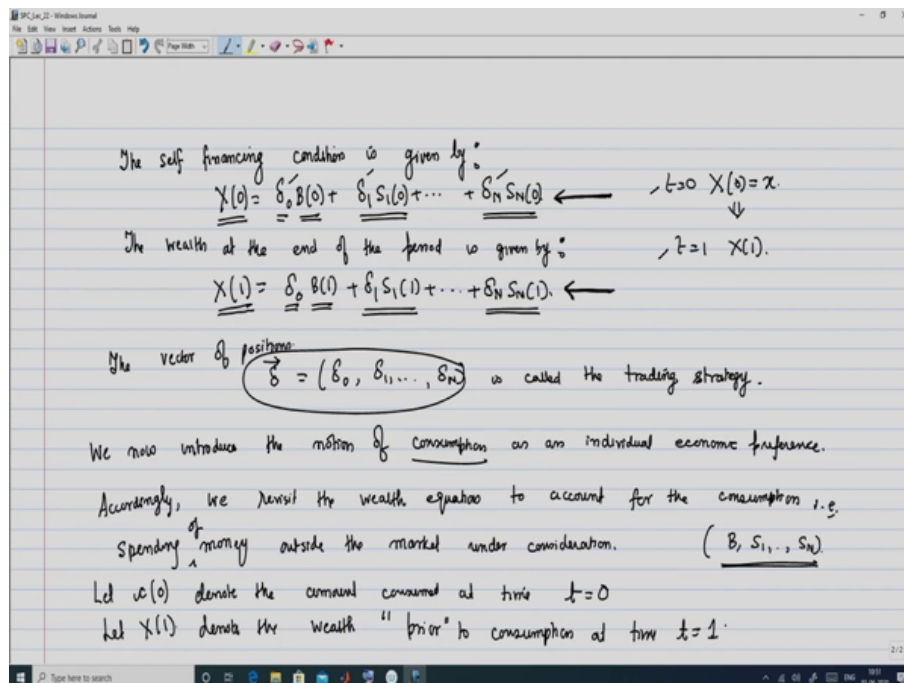 SPC_Lec_22 - Windows Journal
File Edit View Insert Actions Tools Help
Page Width
The self financing condition is given by:
X(0) = δ₀ B(0) + δ₁ S₁(0) + ··· + δ_N S_N(0) ← , t=0 X(0) = x.
⇓
The wealth at the end of the period is given by: , t=1 X(1).
X(1) = δ₀ B(1) + δ₁ S₁(1) + ··· + δ_N S_N(1). ←
The vector of positions
δ⃗ = (δ₀, δ₁, ..., δ_N) is called the trading strategy.
We now introduce the notion of consumption as an individual economic preference.
Accordingly, we revisit the wealth equation to account for the consumption i.e.
spending of money outside the market under consideration. (B, S₁, .., S_N)
Let c(0) denote the amount consumed at time t=0
Let X(1) denote the wealth "prior" to consumption at time t=1.
2/2
Type here to search
ENG
10:51